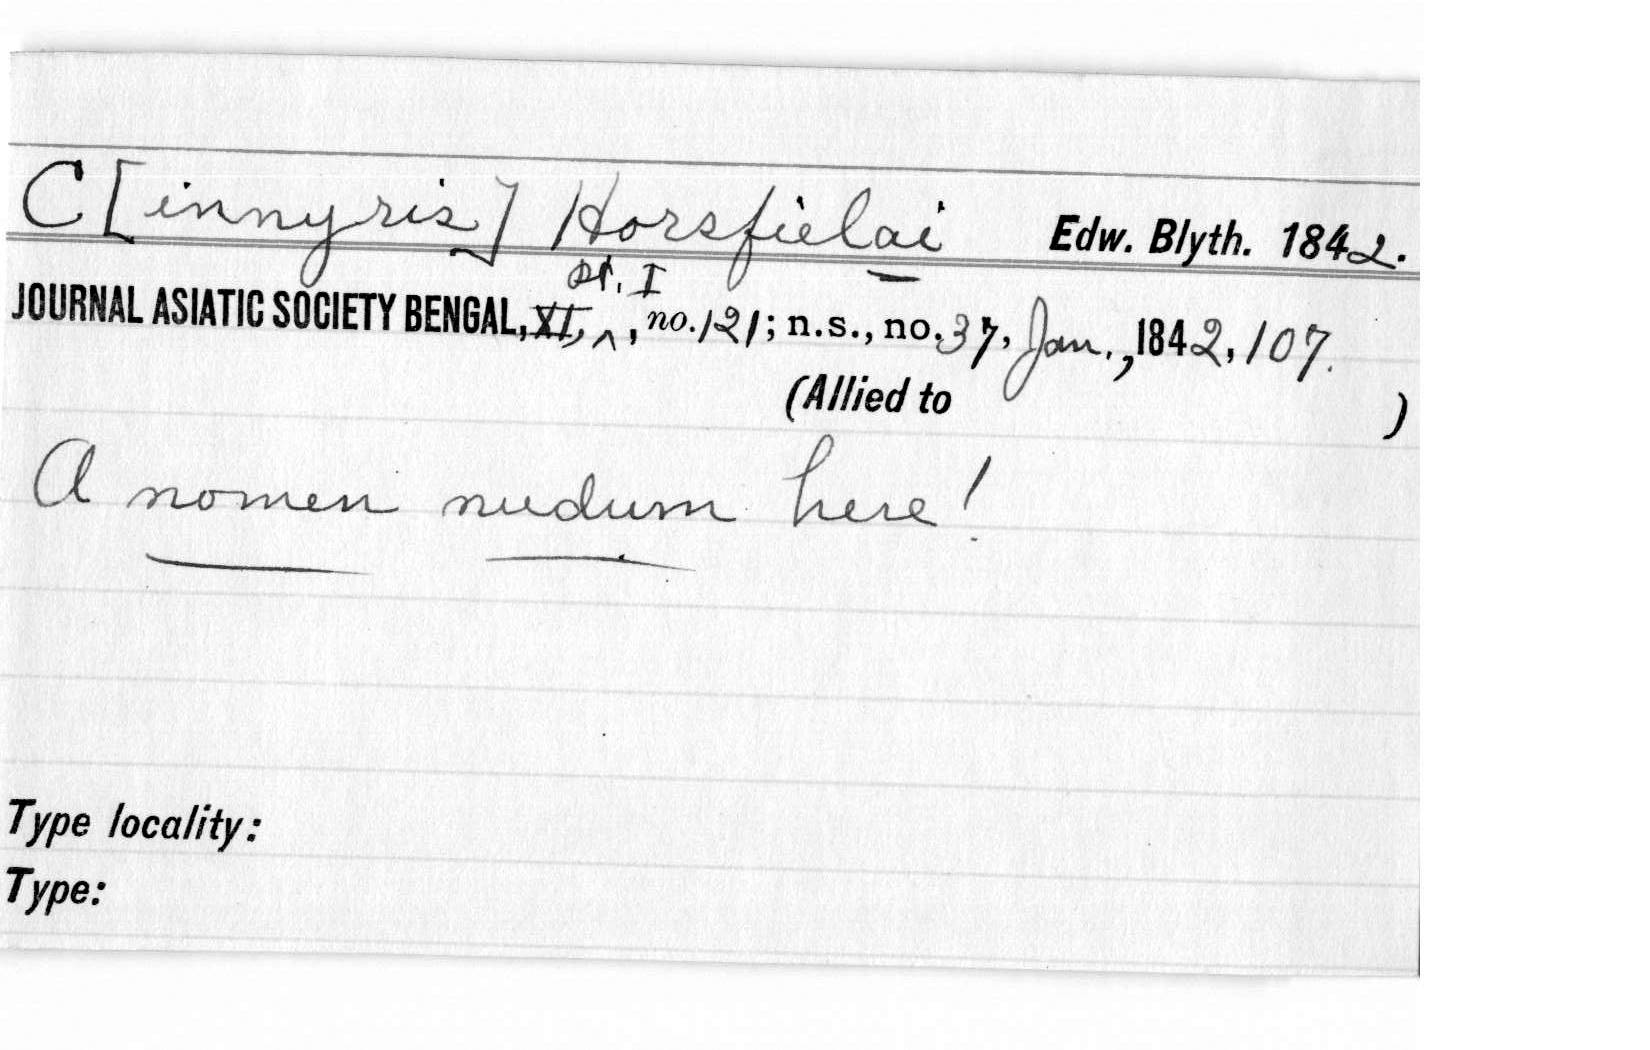 C[innyris] Horsfielai Edw. Blyth. 1842.
pt. I
JOURNAL ASIATIC SOCIETY BENGAL, XI, ^, no. 121; n.s., no. 37, Jan., 1842, 107.
(Allied to )
A nomen nudum here!
Type locality:
Type: